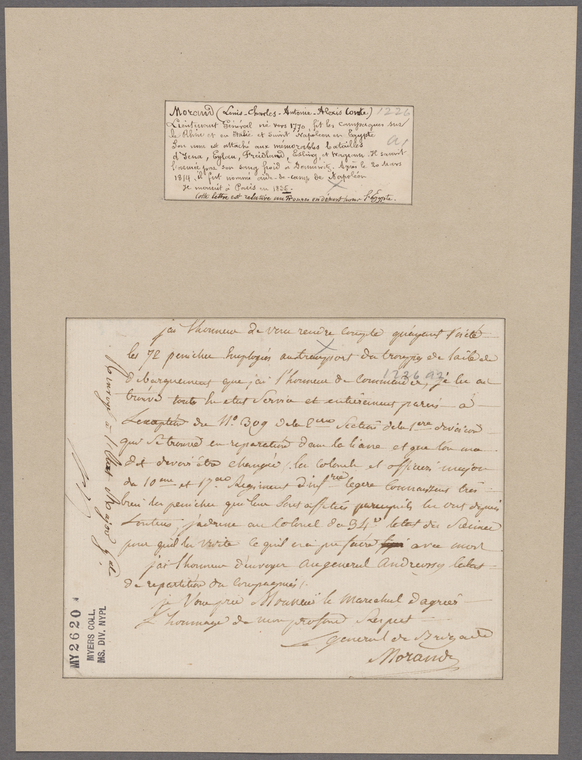 Morand (Louis-Charles-Antoine-Alexis Comte.) 1226
Lieutenant Général né vers 1770, fit les campagnes sur
le Rhin et en Italie et suivit Napoléon en Egypte
Son nom est attaché aux mémorables batailles a1
d'Iena, Eylau, Friedland, Esling, et Wagram. Il sauva
l'armée par son sang froid à
1814 il fut nommé aide-de-camp de Napoléon
Il mourut à Paris en
Cette lettre est relative aux en départ pour l'Egypte.
j'ai l'honneur de vous rendre compte qu'ayant visité
les 72 peniches Employés au transport des troupes de
débarquement que j'ai l'honneur de commander, je les ai
1226 a2
trouvé toute en etat Service et entièrement parés à
L'exception du No. 309 de la 2eme Section de la 1ere division
qui se trouve en reparation dans la liane et que l'on m'a
dit devoir être changée; les colonels et officiers majors
du 10eme et 17eme Regiment d'Infrie legere connaissent très
bien les peniches qui leur sont affectées
j'adresse au Colonel du 34e l'etat des Siennes
pour qu'il les visite ce qu'il n'a pu faire avec moi
j'ai l'honneur d'envoyer au general Andreossy l'etat
de repartition des compagnies.
je Vous prie Monsieur le Marechal d'agréer
L'hommage de mon profond Respect
Le general de Brigade
Morand
MY 2620
MYERS COLL.
MS. DIV. NYPL